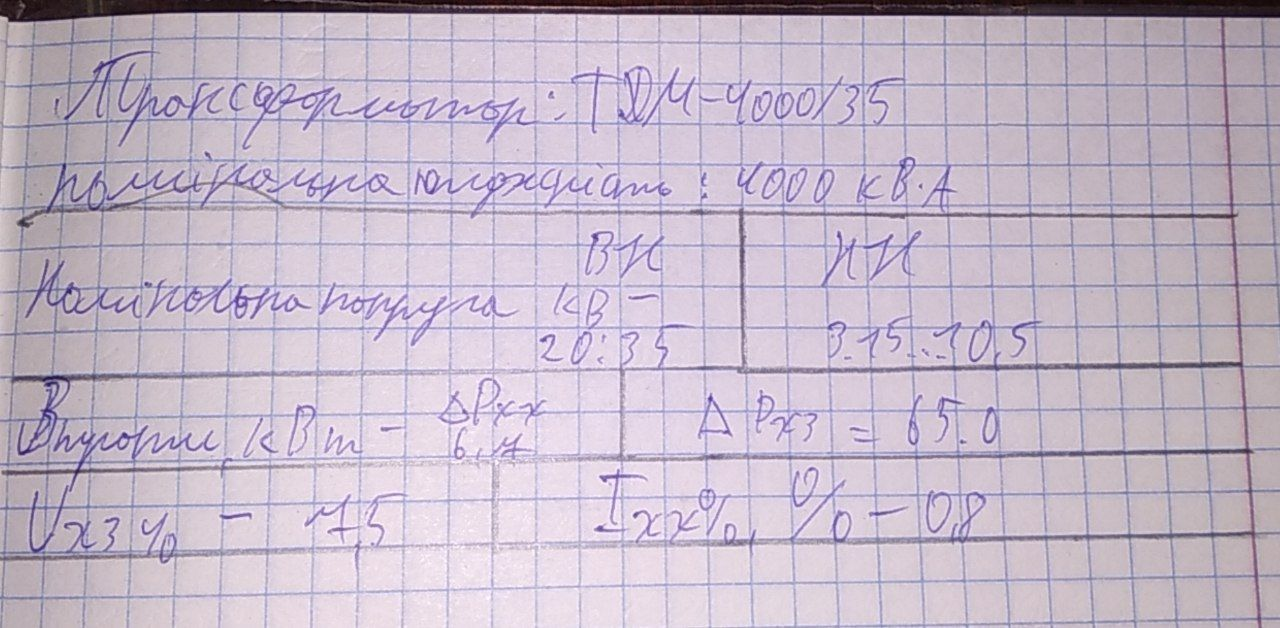 Трансформатор: ТДН-4000/35
номінальна потужність: 4000 кВ·А
ВН НН
Номінальна напруга кВ –
20:35 3.15...10,5
Втрати, кВт – ΔРхх 6,7 ΔРкз = 65.0
Uкз% – 7,5 Iхх%, % – 0,8